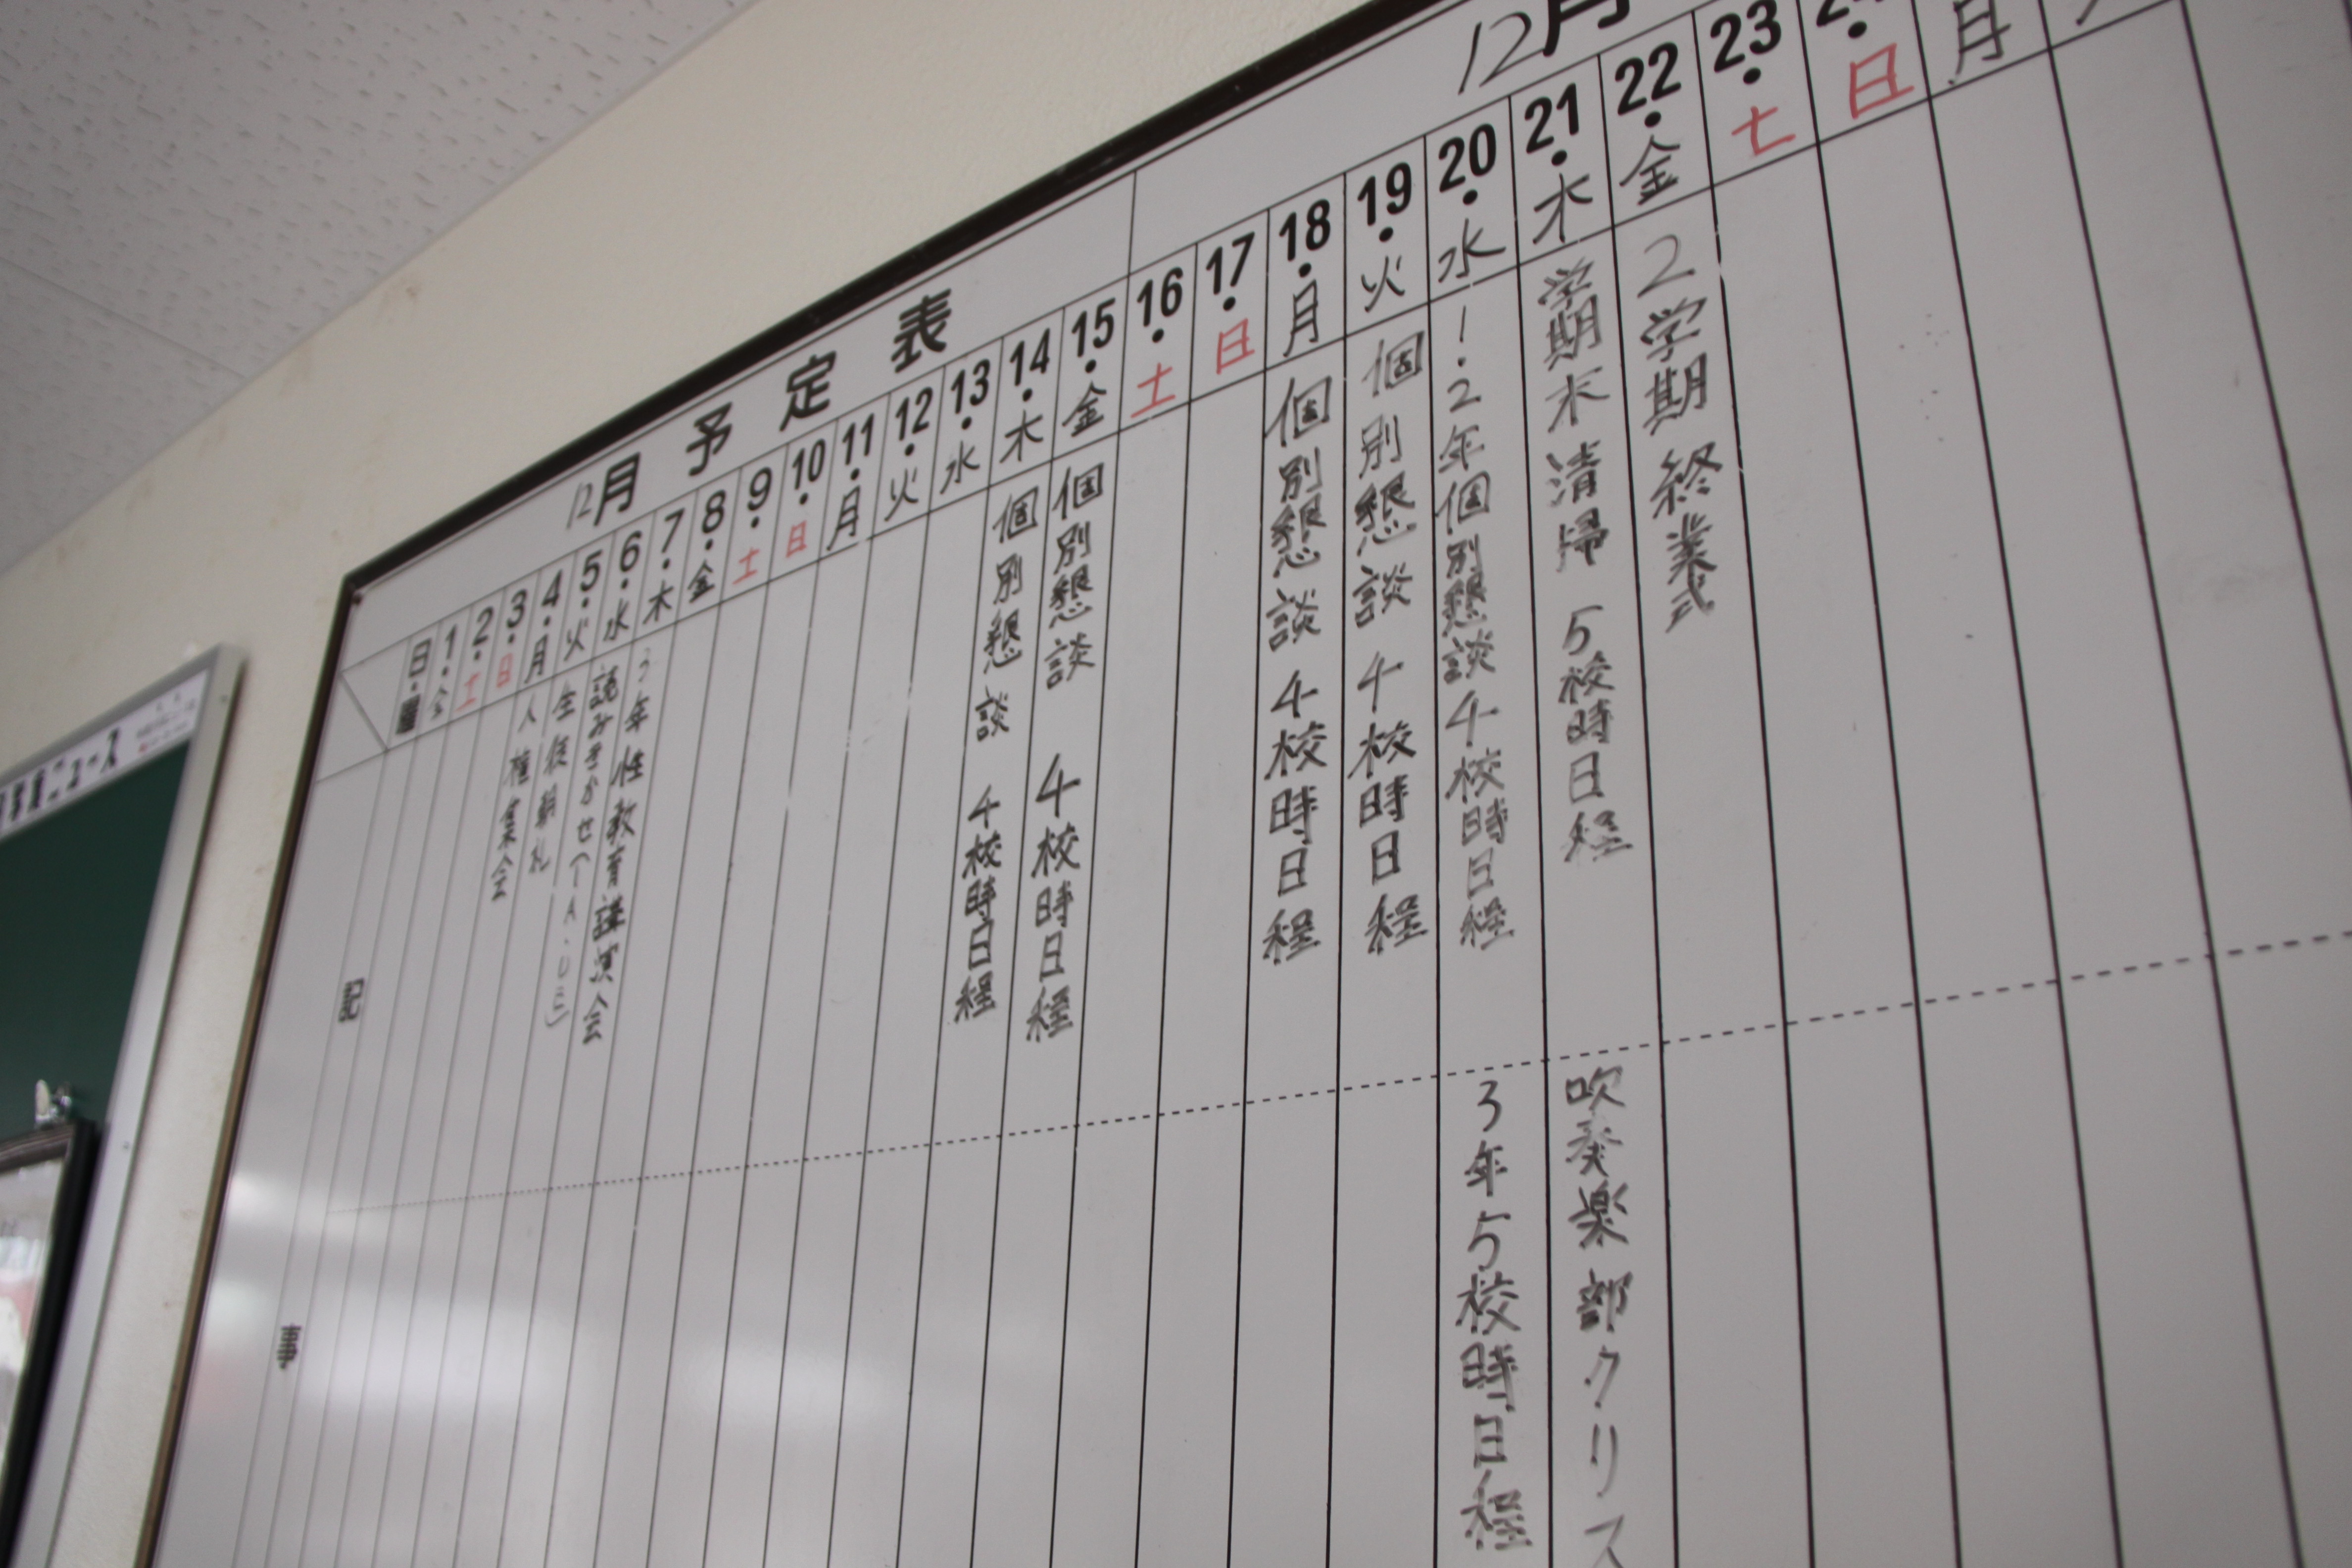 12月予定表
12月
日・曜
1・金
2・土
3・日
4・月 人権集会
5・火 生徒朝礼
6・水 読みきかせ
7・木 3年性教育講演会
8・金
9・土
10・日
11・月
12・火
13・水
14・木 個別懇談 4校時日程
15・金 個別懇談 4校時日程
16・土
17・日
18・月 個別懇談 4校時日程
19・火 個別懇談 4校時日程
20・水 1・2年個別懇談 4校時日程 3年5校時日程
21・木 学期末清掃 5校時日程 吹奏楽部クリス
22・金 2学期終業式
23・土
24・日
月
記
事
ニュース